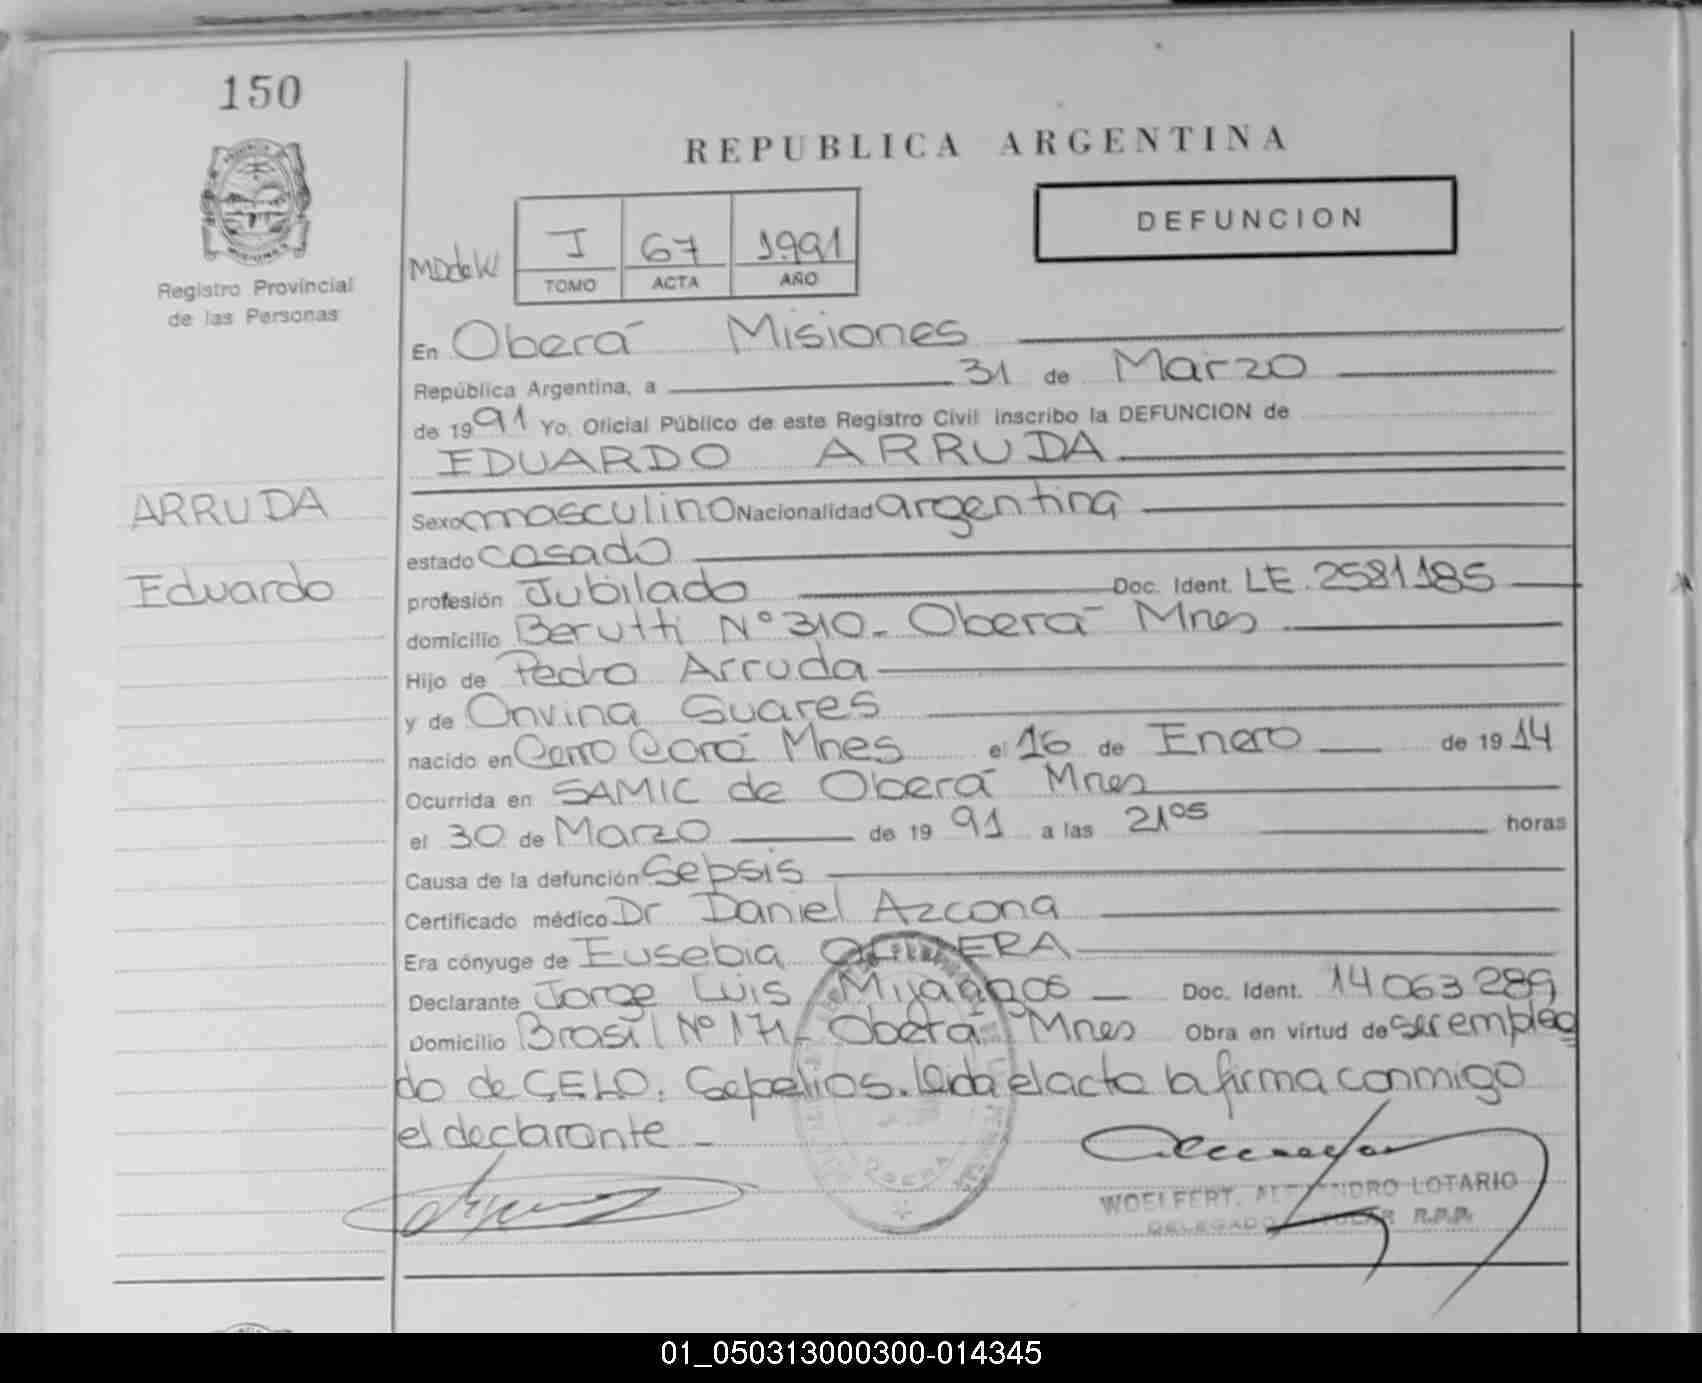 150
REPUBLICA ARGENTINA
Registro Provincial
de las Personas
I 67 1991
TOMO ACTA AÑO
DEFUNCION
En Oberá Misiones
República Argentina, a 31 de Marzo
de 1991 Yo, Oficial Público de este Registro Civil inscribo la DEFUNCION de
EDUARDO ARRUDA
ARRUDA
Eduardo
Sexo masculino Nacionalidad argentina
estado casado
profesión Jubilado Doc. Ident. LE. 2581185
domicilio Berutti N° 310. Oberá Mnes
Hijo de Pedro Arruda
y de Onvina Suares
nacido en Cerro Corá Mnes el 16 de Enero de 1914
Ocurrida en SAMIC de Oberá Mnes
el 30 de Marzo de 1991 a las 21 05 horas
Causa de la defunción Sepsis
Certificado médico Dr Daniel Azcona
Era cónyuge de Eusebia
Declarante Jorge Luis Doc. Ident. 14063289
Domicilio Brasil N° 171. Oberá Mnes Obra en virtud de ser emplea
do de CELO. Sepelios. leida el acta la firma conmigo
el declarante
OBERA
WOELFERT, ALEJANDRO LOTARIO
DELEGADO TITULAR R.P.P.
01_050313000300-014345